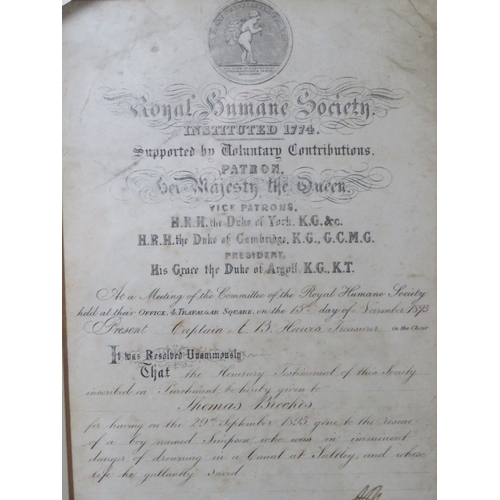 Royal Humane Society.
INSTITUTED 1774.
Supported by Voluntary Contributions.
PATRON,
Her Majesty the Queen.
VICE PATRONS,
H.R.H. the Duke of York. K.G. &c.
H.R.H. the Duke of Cambridge, K.G., G.C.M.G.
PRESIDENT,
His Grace the Duke of Argyll, K.G., K.T.
At a Meeting of the Committee of the Royal Humane Society
held at their OFFICE, 4, TRAFALGAR SQUARE, on the 15th day of November 1895
Present Captain A. B. Hawes Treasurer in the Chair
It was Resolved Unanimously
That the Honorary Testimonial of this Society
inscribed on Parchment be hereby given to
Thomas
for having on the 29th September 1895 gone to the rescue
of a boy named Simpson who was in imminent
danger of drowning in a Canal at Saltley, and whose
life he gallantly saved